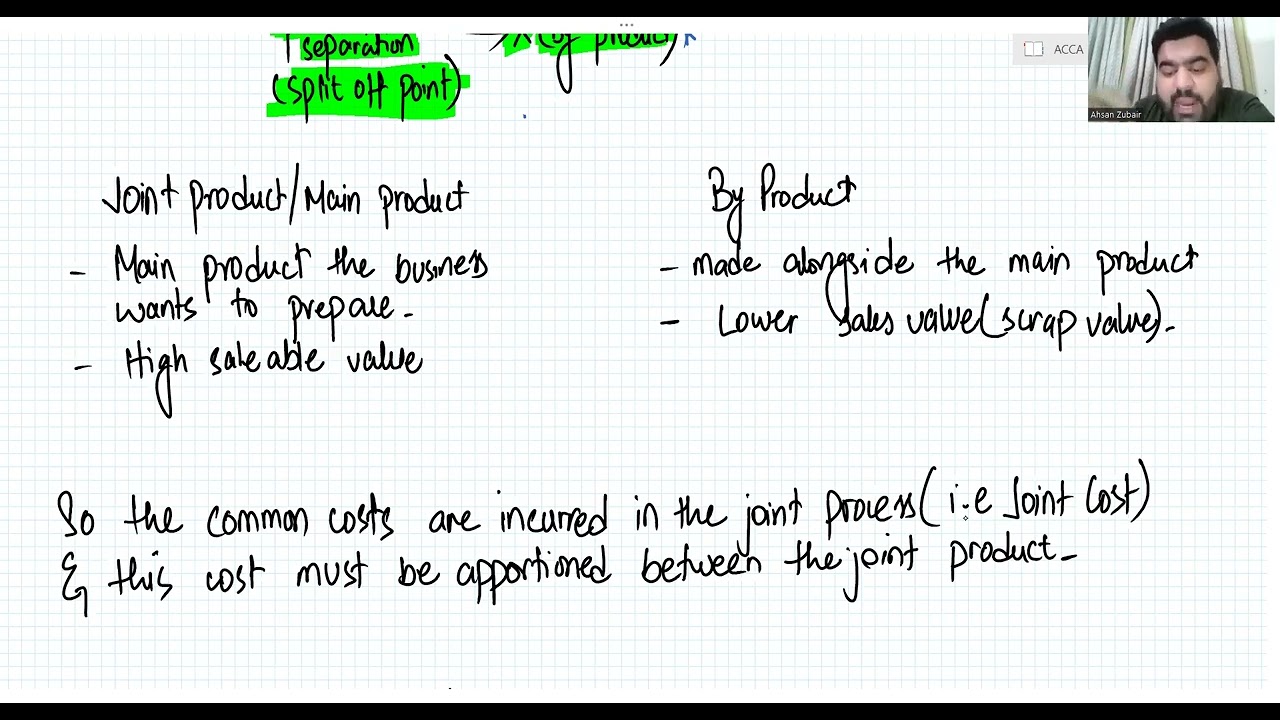 separation
(by product)
(split off point)
ACCA
Ahsan Zubair
Joint product/Main product
- Main product the business
wants to prepare.
- High saleable value
By Product
- made alongside the main product
- Lower sales value(scrap value).
So the common costs are incurred in the joint process (i.e Joint Cost)
& this cost must be apportioned between the joint product.